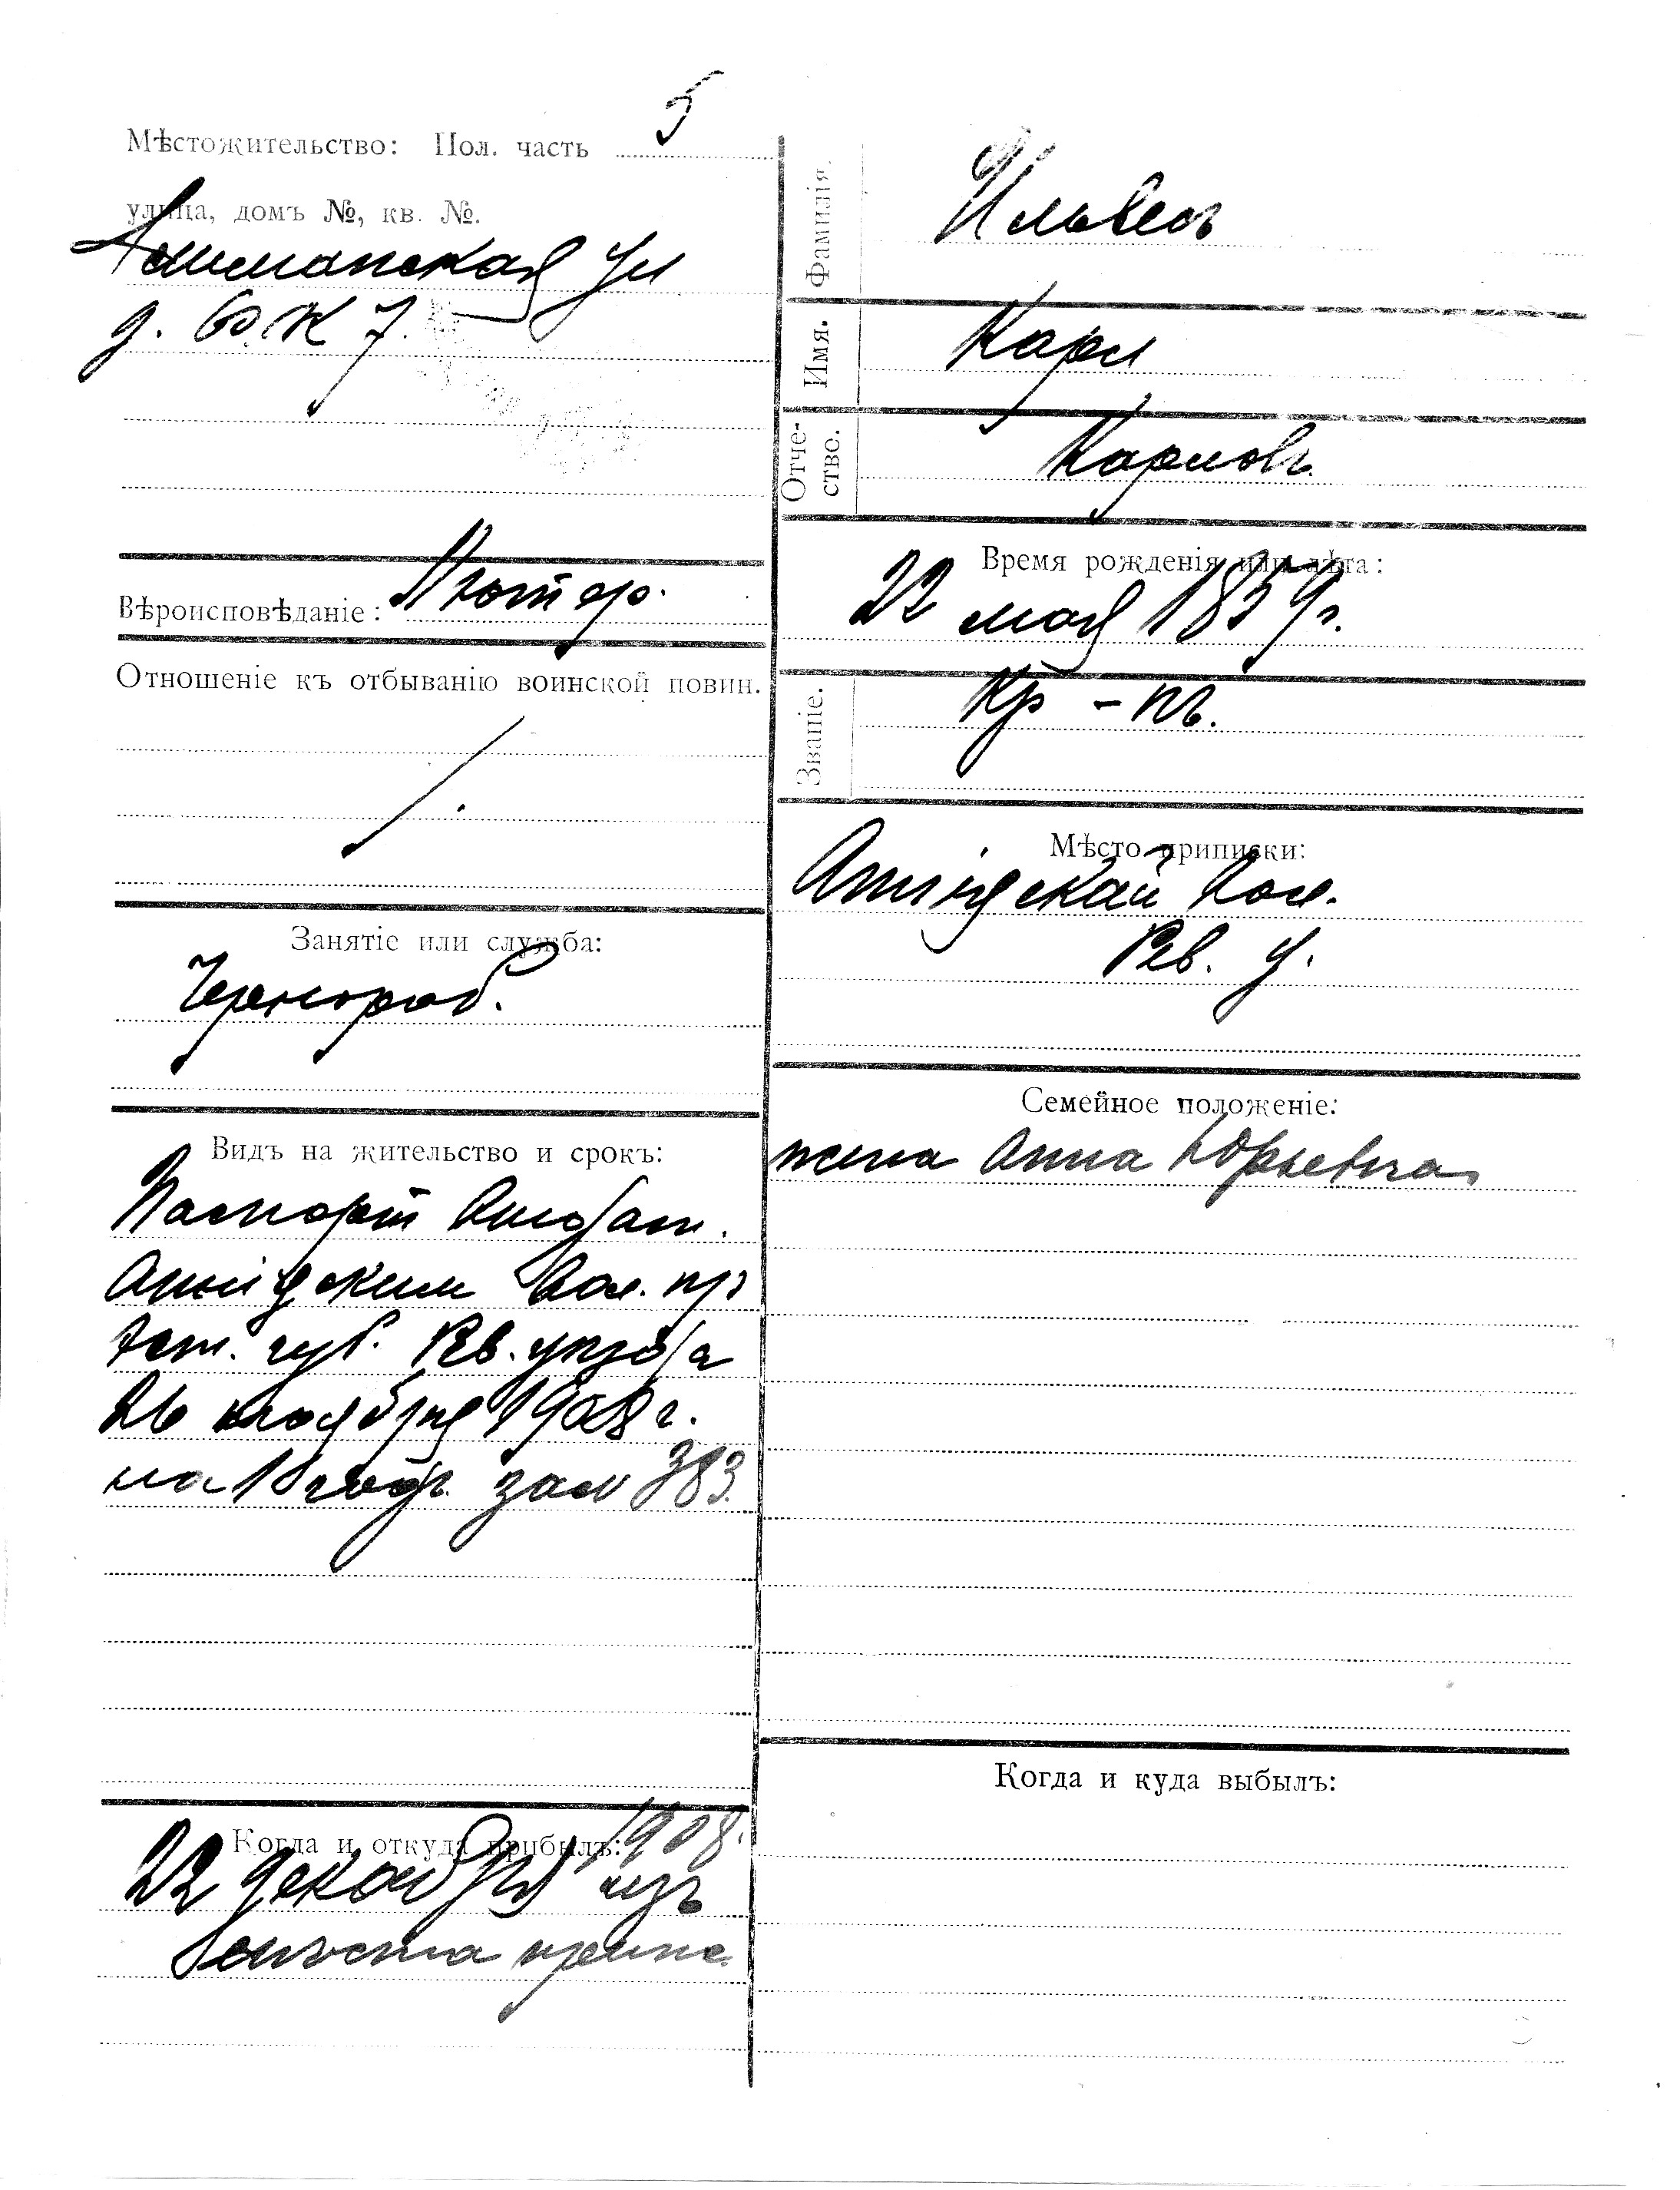 Мѣстожительство: Пол. часть 5
улица, домъ №, кв. №.
ул
д. 60. К 7.
Вѣроисповѣданіе: Лютер.
Отношеніе къ отбыванію воинской повин.
Занятіе или служба:
Чернораб.
Видъ на жительство и срокъ:
Паспорт Выдан.
Вол. пр
Эст. губ. Рев. уѣзда
26 ноября 1908 г.
на 1 годъ за № 383.
Когда и откуда прибылъ: 1908.
22 декабря изъ
Фамилія.
Ильвесъ
Имя.
Карл
Отче-
ство.
Карловъ
Время рожденія или лѣта:
22 мая 1859 г.
Званіе.
Кр-нъ.
Мѣсто приписки:
Вол.
Рев. у.
Семейное положеніе:
жена Анна Юрьевна
Когда и куда выбылъ: